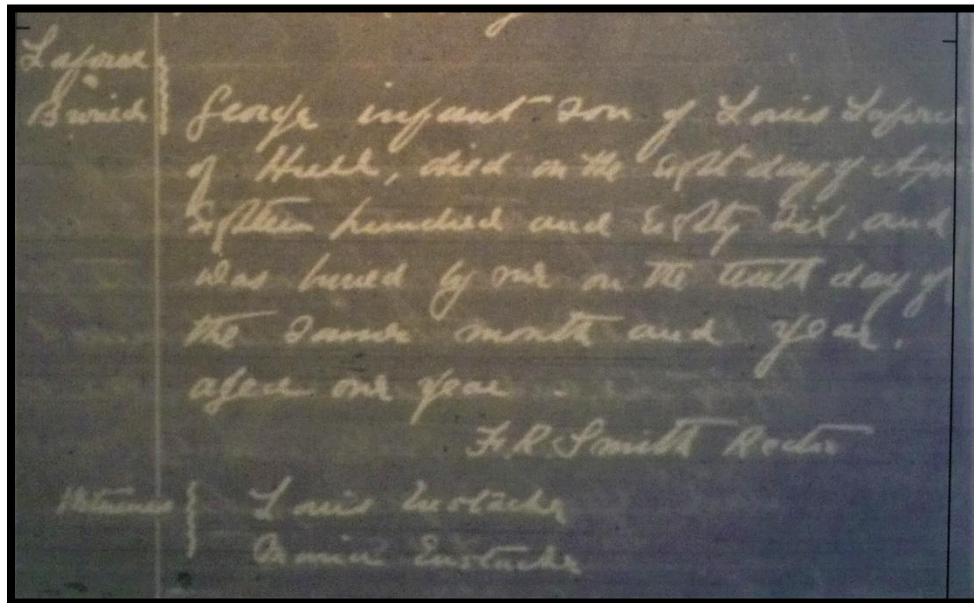 Buried
George infant son of Louis
of Hull, died on the eighth day of
Eighteen hundred and Eighty Six, and
was buried by me on the tenth day of
the same month and year.
aged one year
F.R. Smith Rector
Witnesses
Louis Eustache
Eustache